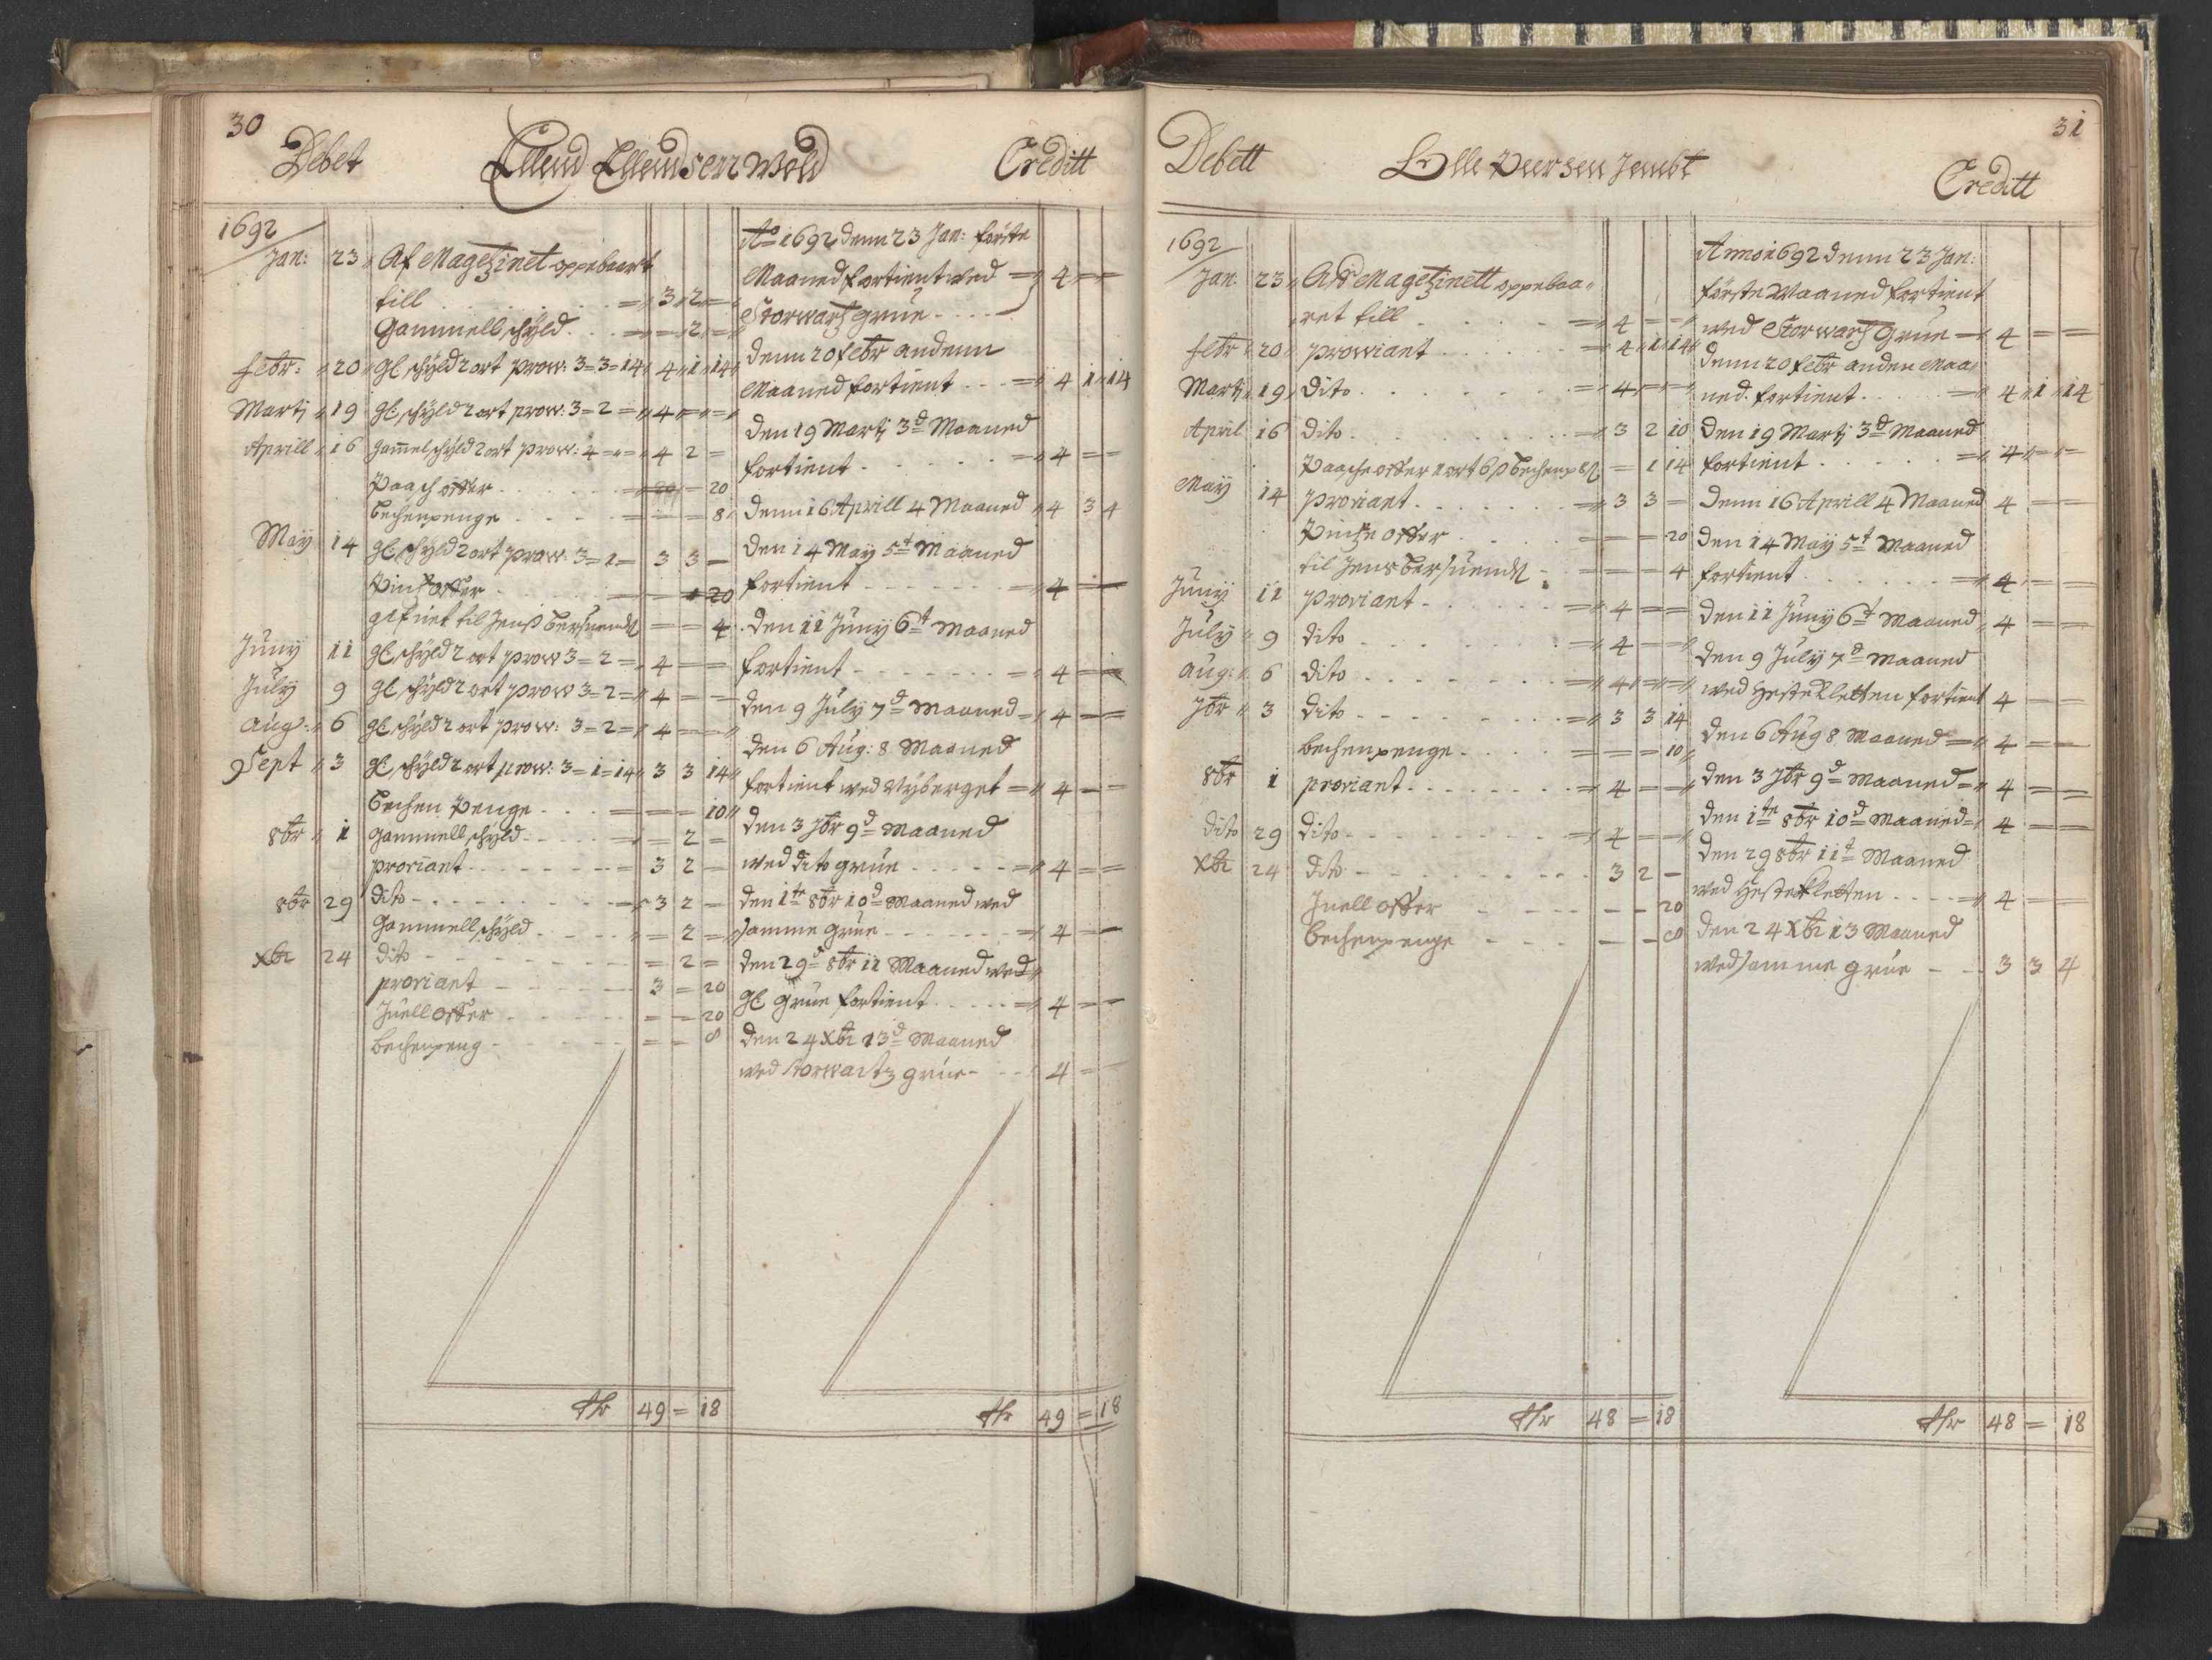 30
Debet Ellend Ellendsen Wold Creditt
1692
Jan: 23 Af Magetzinet oppebaart
till = 3 2 =
Gammell schyld = = 2 =
febr: 20 gl schyld 2 ort prow: 3=3=14 4 1 14
Martj 19 gl schyld 2 ort prow: 3=2= 4 = =
Aprill 16 gammel schyld 2 ort prow: 4=== 4 2 =
Paasch offer = = 20
bechenpenge = = 8
May 14 gl schyld 2 ort prow: 3=1= 3 3 =
Pintz offer = = 20
gefuet til Jenß = = 4
Juny 11 gl schyld 2 ort prow 3=2= 4 = =
July 9 gl schyld 2 ort prow 3=2= 4 = =
Aug: 6 gl schyld 2 ort prow: 3=2= 4 = =
Sept 3 gl schyld 2 ort prow: 3=1=14 3 3 14
bechen Penge = = 10
8br 1 Gammell schyld = 2 =
proviant 3 2 =
8br 29 dito 3 2 =
Gammell schyld = 2 =
xbr 24 dito = 2 =
proviant 3 = 20
Juell offer = = 20
bechenpeng = = 8
thr 49 = 18
Ao 1692 denn 23 Jan: förste
Maaned fortient wed = 4 = =
Storwartz grue
denn 20 febr andenn
Maaned fortient = 4 1 14
den 19 Martj 3d Maaned
fortient = 4 = =
denn 16 Aprill 4 Maaned 4 3 4
den 14 May 5t Maaned
fortient = 4 = =
den 11 Juny 6t Maaned
fortient = 4 = =
den 9 July 7d Maaned = 4 = =
den 6 Aug: 8 Maaned
fortient wed Nyberget = 4 = =
den 3 7br 9d Maaned
wed dito grue = 4 = =
den 1te 8br 10d Maaned wed
samme grue = 4 = =
den 29d 8br 11 Maaned wed
gl grue fortient = 4 = =
den 24 xbr 13d Maaned
wed storwartz grue 4 = =
thr 49 = 18
31
Debett Olle Peersen Jembt Creditt
1692
Jan: 23 Aff Magetzinett oppebaa
ret till = 4 = =
febr 20 prowiant = 4 1 14
Martj 19 dito = 4 = =
April 16 dito = 3 2 10
Paasche offer 1 ort 6 ß bechenp 8 ß = 1 14
May 14 proviant = 3 3 =
Pintze offer = = 20
til Jens = = 4
Juny 11 proviant = 4 = =
July 9 dito = 4 = =
Aug: 6 dito = 4 = =
7br 3 dito = 3 3 14
bechenpenge = = = 10
8br 1 proviant = 4 = =
dito 29 dito = 4 = =
xbr 24 dito 3 2 =
Juell offer = = 20
bechenpenge = = 8
thr 48 = 18
Anno 1692 denn 23 Jan:
förste Maaned fortient
wed Storwartz Grue = 4 = =
denn 20 febr anden Maa
ned fortient = 4 1 14
den 19 Martj 3d Maaned
fortient = 4 = =
denn 16 Aprill 4 Maaned 4 = =
den 14 May 5t Maaned
fortient = 4 = =
den 11 Juny 6t Maaned 4 = =
den 9 July 7d Maaned
wed Hestekletten fortient 4 = =
den 6 Aug 8 Maaned = 4 = =
den 3 7br 9d Maaned = 4 = =
den 1te 8br 10d Maaned = 4 = =
den 29 8br 11t Maaned
wed Hesteckletten = 4 = =
den 24 xbr 13 Maaned
wed samme grue 3 3 4
thr 48 = 18